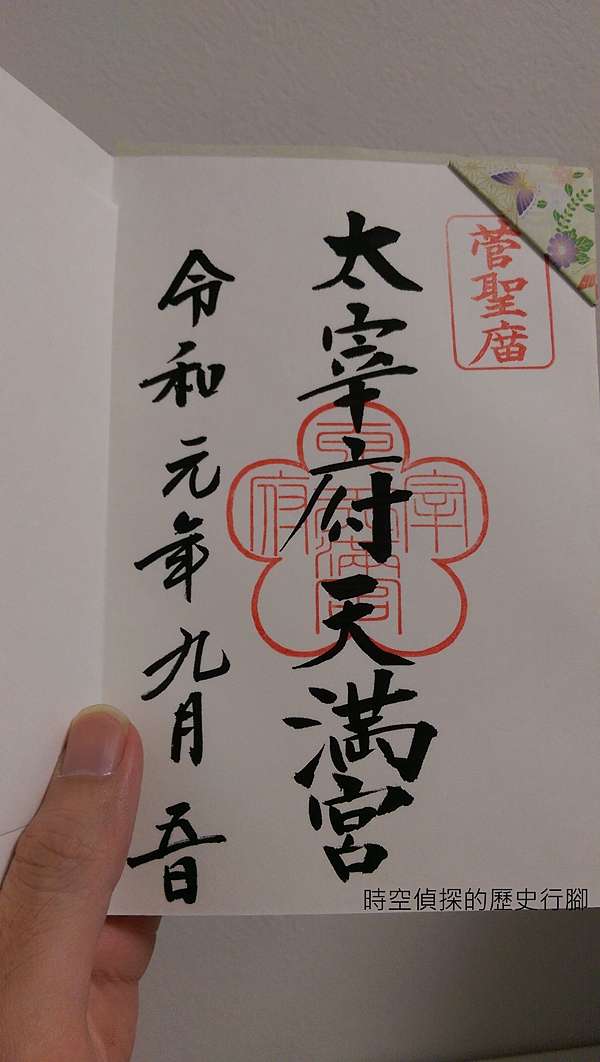 菅聖庿
太宰府天満宮
令和元年九月五日
時空偵探的歷史行腳